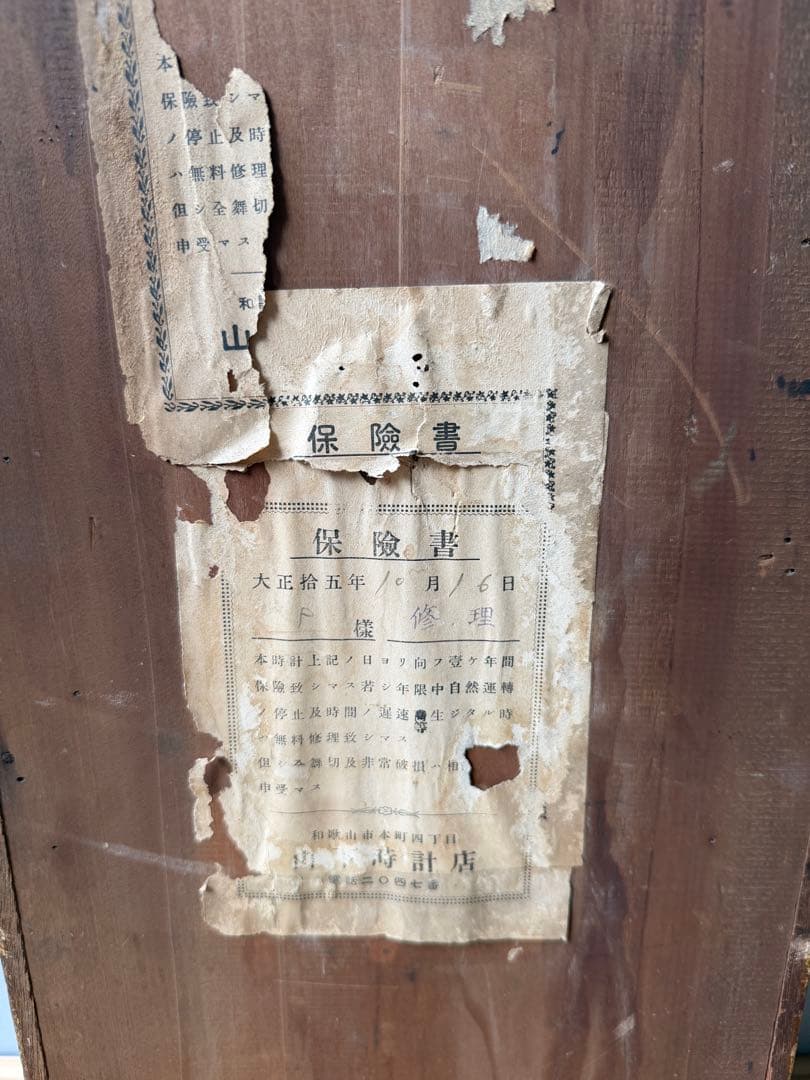 本
保險致シマ
ノ停止及時
ハ無料修理
但シ全舞切
申受マス
和
山
保險書
保險書
大正拾五年10月16日
様 修理
本時計上記ノ日ヨリ向フ壹ケ年間
保險致シマス若シ年限中自然運轉
ノ停止及時間ノ遲速 生ジタル時
無料修理致シマス
但シ 舞切及非常破損ハ相
申受マス
和歌山市本町四丁目
山 時計店
電話二〇四七番